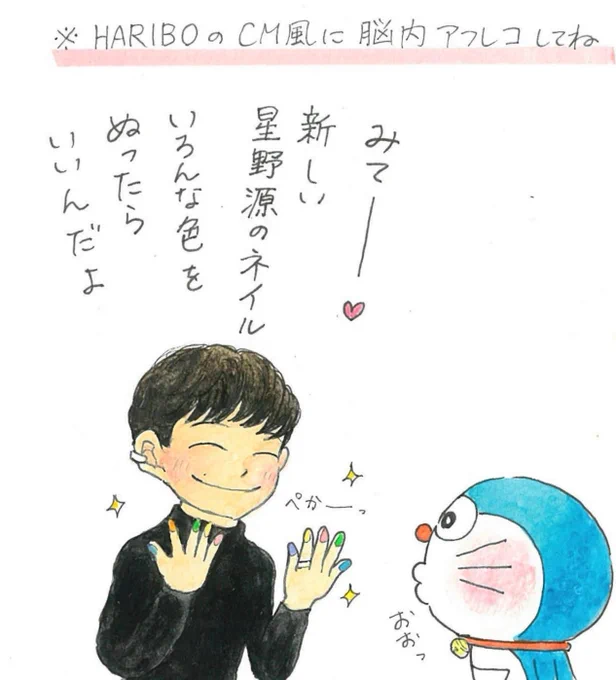 ※ HARIBOのCM風に脳内アフレコしてね
みてー♥
新しい
星野源のネイル
いろんな色を
ぬったら
いいんだよ
ぺかーっ
おおっ